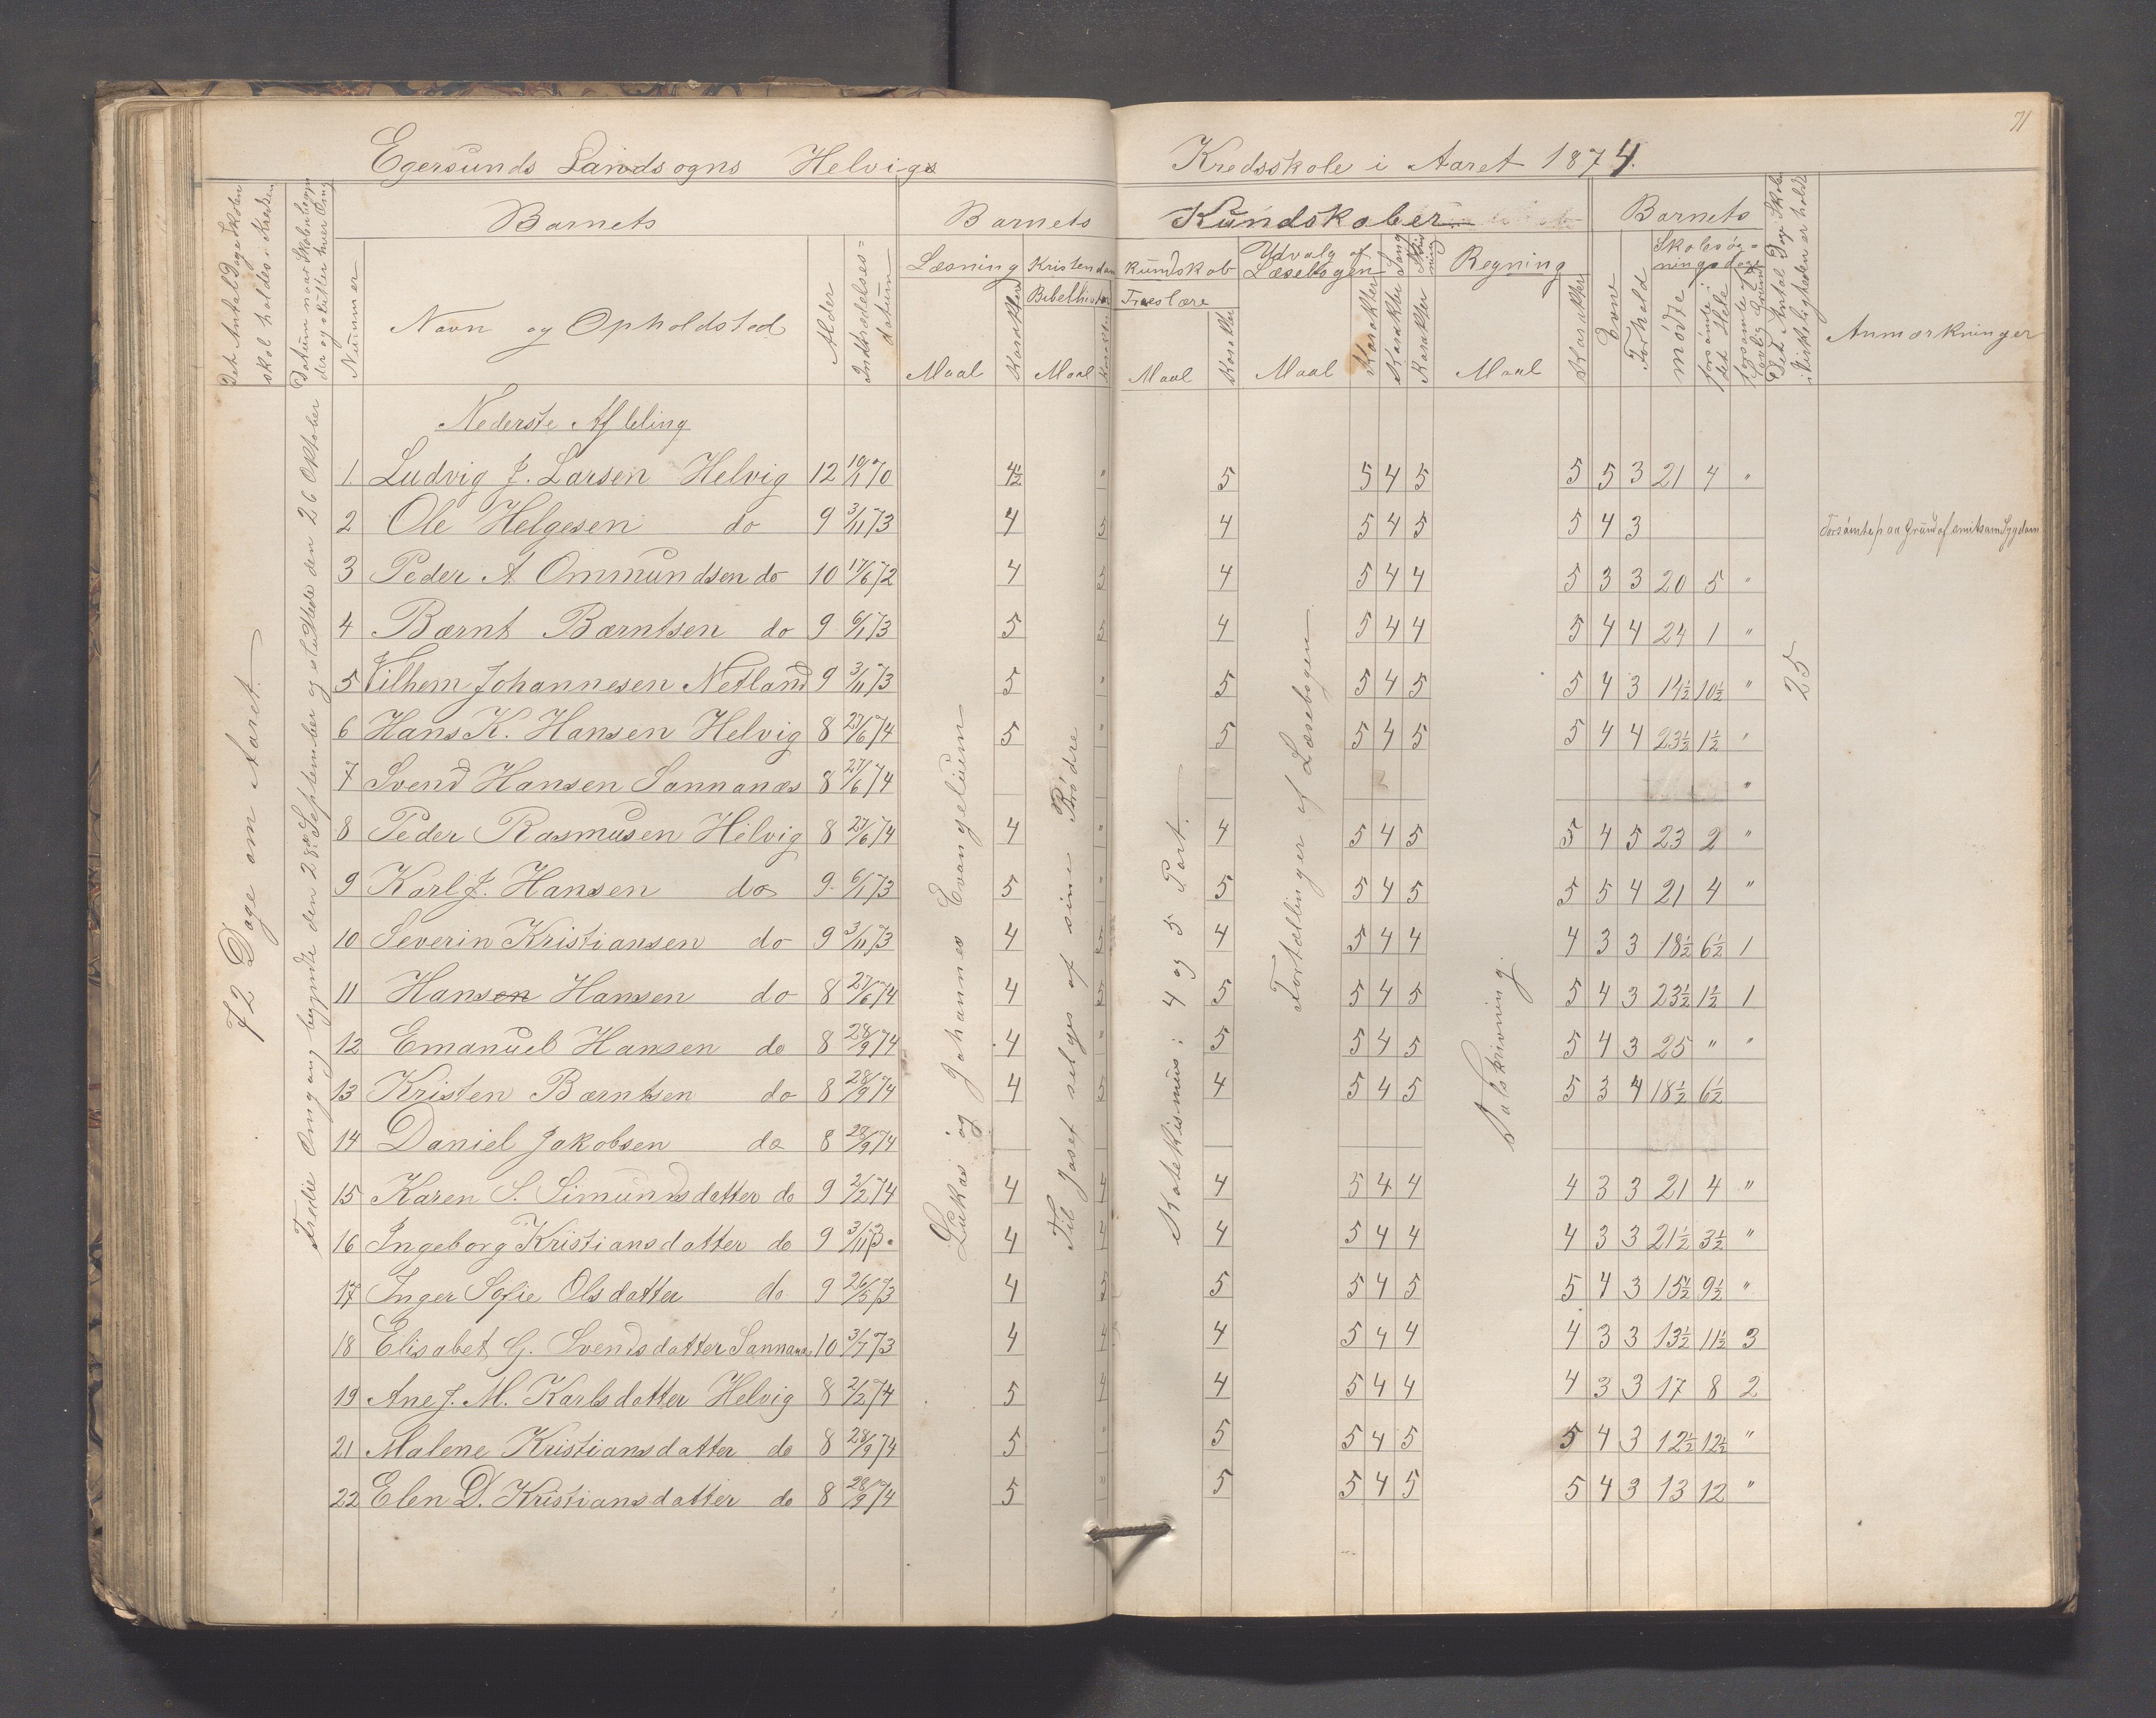 71
Egersunds Landsogns Helvigs Kredsskole i Aaret 1874.
Det Antal Dage Skolen skal holdes i Kredsen
Datum naar Skolen begynder og slutter hver Omg
Barnets
Nummer
Navn og Opholdsted
Alder
Indtrædelses=datum
Barnets Kundskaber
Læsning
Maal
Karakter
Kristendomskundskab
Bibelhistorie
Maal
Karakter
Troeslære
Maal
Karakter
Udvalg af Læsebogen
Maal
Karakter
Karakter Sang
Karakter Skrivning
Regning
Maal
Karakter
Barnets
Evne
Forhold
Skolesøgningsdage
mødte
forsømte i det Hele
forsømte af lovlig Grund
Det Antal Dage Skolen i Virkeligheden er holdt
Anmærkninger
72 Dage om Aaret
Tredie Omgang begyndte den 28de September og sluttede den 26 Oktober
Nederste Afdeling
Lukas og Johannes Evangelium
Til Josef selges af sine Brødre
Katekismus: 4 og 5 Part.
Fortællinger af Læsebogen
Talskrivning.
25
1 Ludvig J. Larsen Helvig 12 19/1 70 4½ " 5 5 4 5 5 5 3 21 4 "
2 Ole Helgesen do 9 3/11 73 4 5 4 5 4 5 5 4 3 Forsømte paa Grund af smitsom Sygdom
3 Peder A Ommundsen do 10 17/6 72 4 5 4 5 4 4 5 3 3 20 5 "
4 Bærnt Bærntsen do 9 6/1 73 5 5 4 5 4 4 5 4 4 24 1 "
5 Vilhem Johannesen Netland 9 3/11 73 5 " 5 5 4 5 5 4 3 14½ 10½ "
6 Hans K. Hansen Helvig 8 27/6 74 5 " 5 5 4 5 5 4 4 23½ 1½ "
7 Svend Hansen Sannanæs 8 27/6 74 "
8 Peder Rasmusen Hilvig 8 27/6 74 4 " 4 5 4 5 5 4 5 23 2 "
9 Karl J. Hansen do 9 6/1 73 5 " 5 5 4 5 5 5 4 21 4 "
10 Severin Kristiansen do 9 3/11 73 4 5 4 5 4 4 4 3 3 18½ 6½ 1
11 Hansen Hansen do 8 27/6 74 4 5 5 5 4 5 5 4 3 23½ 1½ 1
12 Emanuel Hansen do 8 28/9 74 4 " 5 5 4 5 5 4 3 25 " "
13 Kristen Bærntsen do 8 28/9 74 4 5 4 5 4 5 5 3 4 18½ 6½
14 Daniel Jakobsen do 8 28/9 74
15 Karen S. Simundsdatter do 9 2/2 74 4 4 4 5 4 4 4 3 3 21 4 "
16 Ingeborg Kristiansdatter do 9 3/11 73. 4 4 4 5 4 4 4 3 3 21½ 3½ "
17 Inger Sofie Olsdatter do 9 26/5 73 4 5 5 5 4 5 5 4 3 15½ 9½ "
18 Elisabet G. Svendsdatter Sannanæs 10 3/7 73 4 4 4 5 4 4 4 3 3 13½ 11½ 3
19 Ane J. M. Karlsdatter Helvig 8 2/2 74 5 4 4 5 4 4 4 3 3 17 8 2
21 Malene Kristiansdatter do 8 28/9 74 5 " 5 5 4 5 5 4 3 12½ 12½ "
22 Elen D. Kristiansdatter do 8 28/9 74 5 " 5 5 4 5 5 4 3 13 12 "